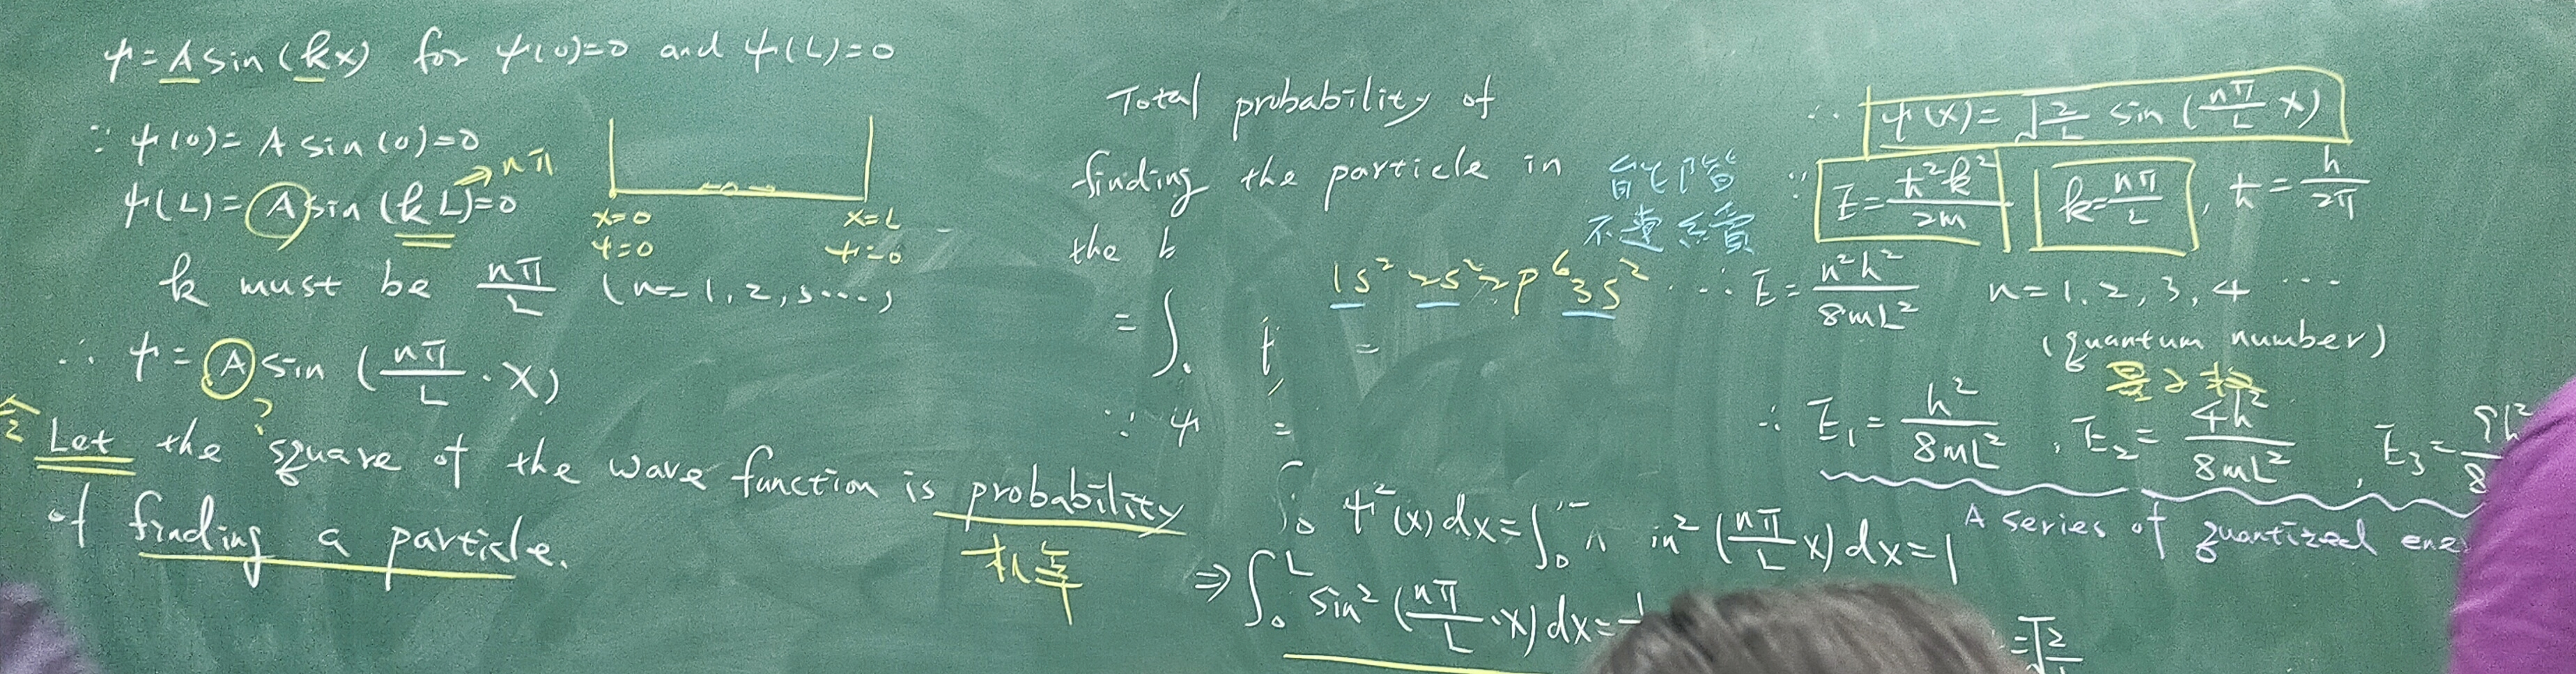 ψ = A sin (kx) for ψ(0)=0 and ψ(L)=0
∵ ψ(0) = A sin (0) = 0
ψ(L) = A sin (kL) = 0
→ nπ
k must be nπ/L (n = 1, 2, 3 ...,
∴ ψ = A sin (nπ/L · x)
?
令
Let the square of the wave function is probability
机率
of finding a particle.
x=0
ψ=0
x=L
ψ=0
Total probability of
finding the particle in
the b
= ∫
=
∵ ψ =
ψ²(x) dx = ∫₀ in² (nπ/L x) dx = 1
⇒ ∫₀ᴸ sin² (nπ/L · x) dx =
能階
不連續
1s² 2s² 2p⁶ 3s²
∴ ψ(x) = √(2/L) sin (nπ/L x)
∵ E = ħ²k²/2m
k = nπ/L , ħ = h/2π
∴ E = n²h²/8mL² n = 1, 2, 3, 4 ...
(quantum number)
量子
∴ E₁ = h²/8mL² , E₂ = 4h²/8mL² , E₃ = 9h²/8
A series of quantized ene
= √2